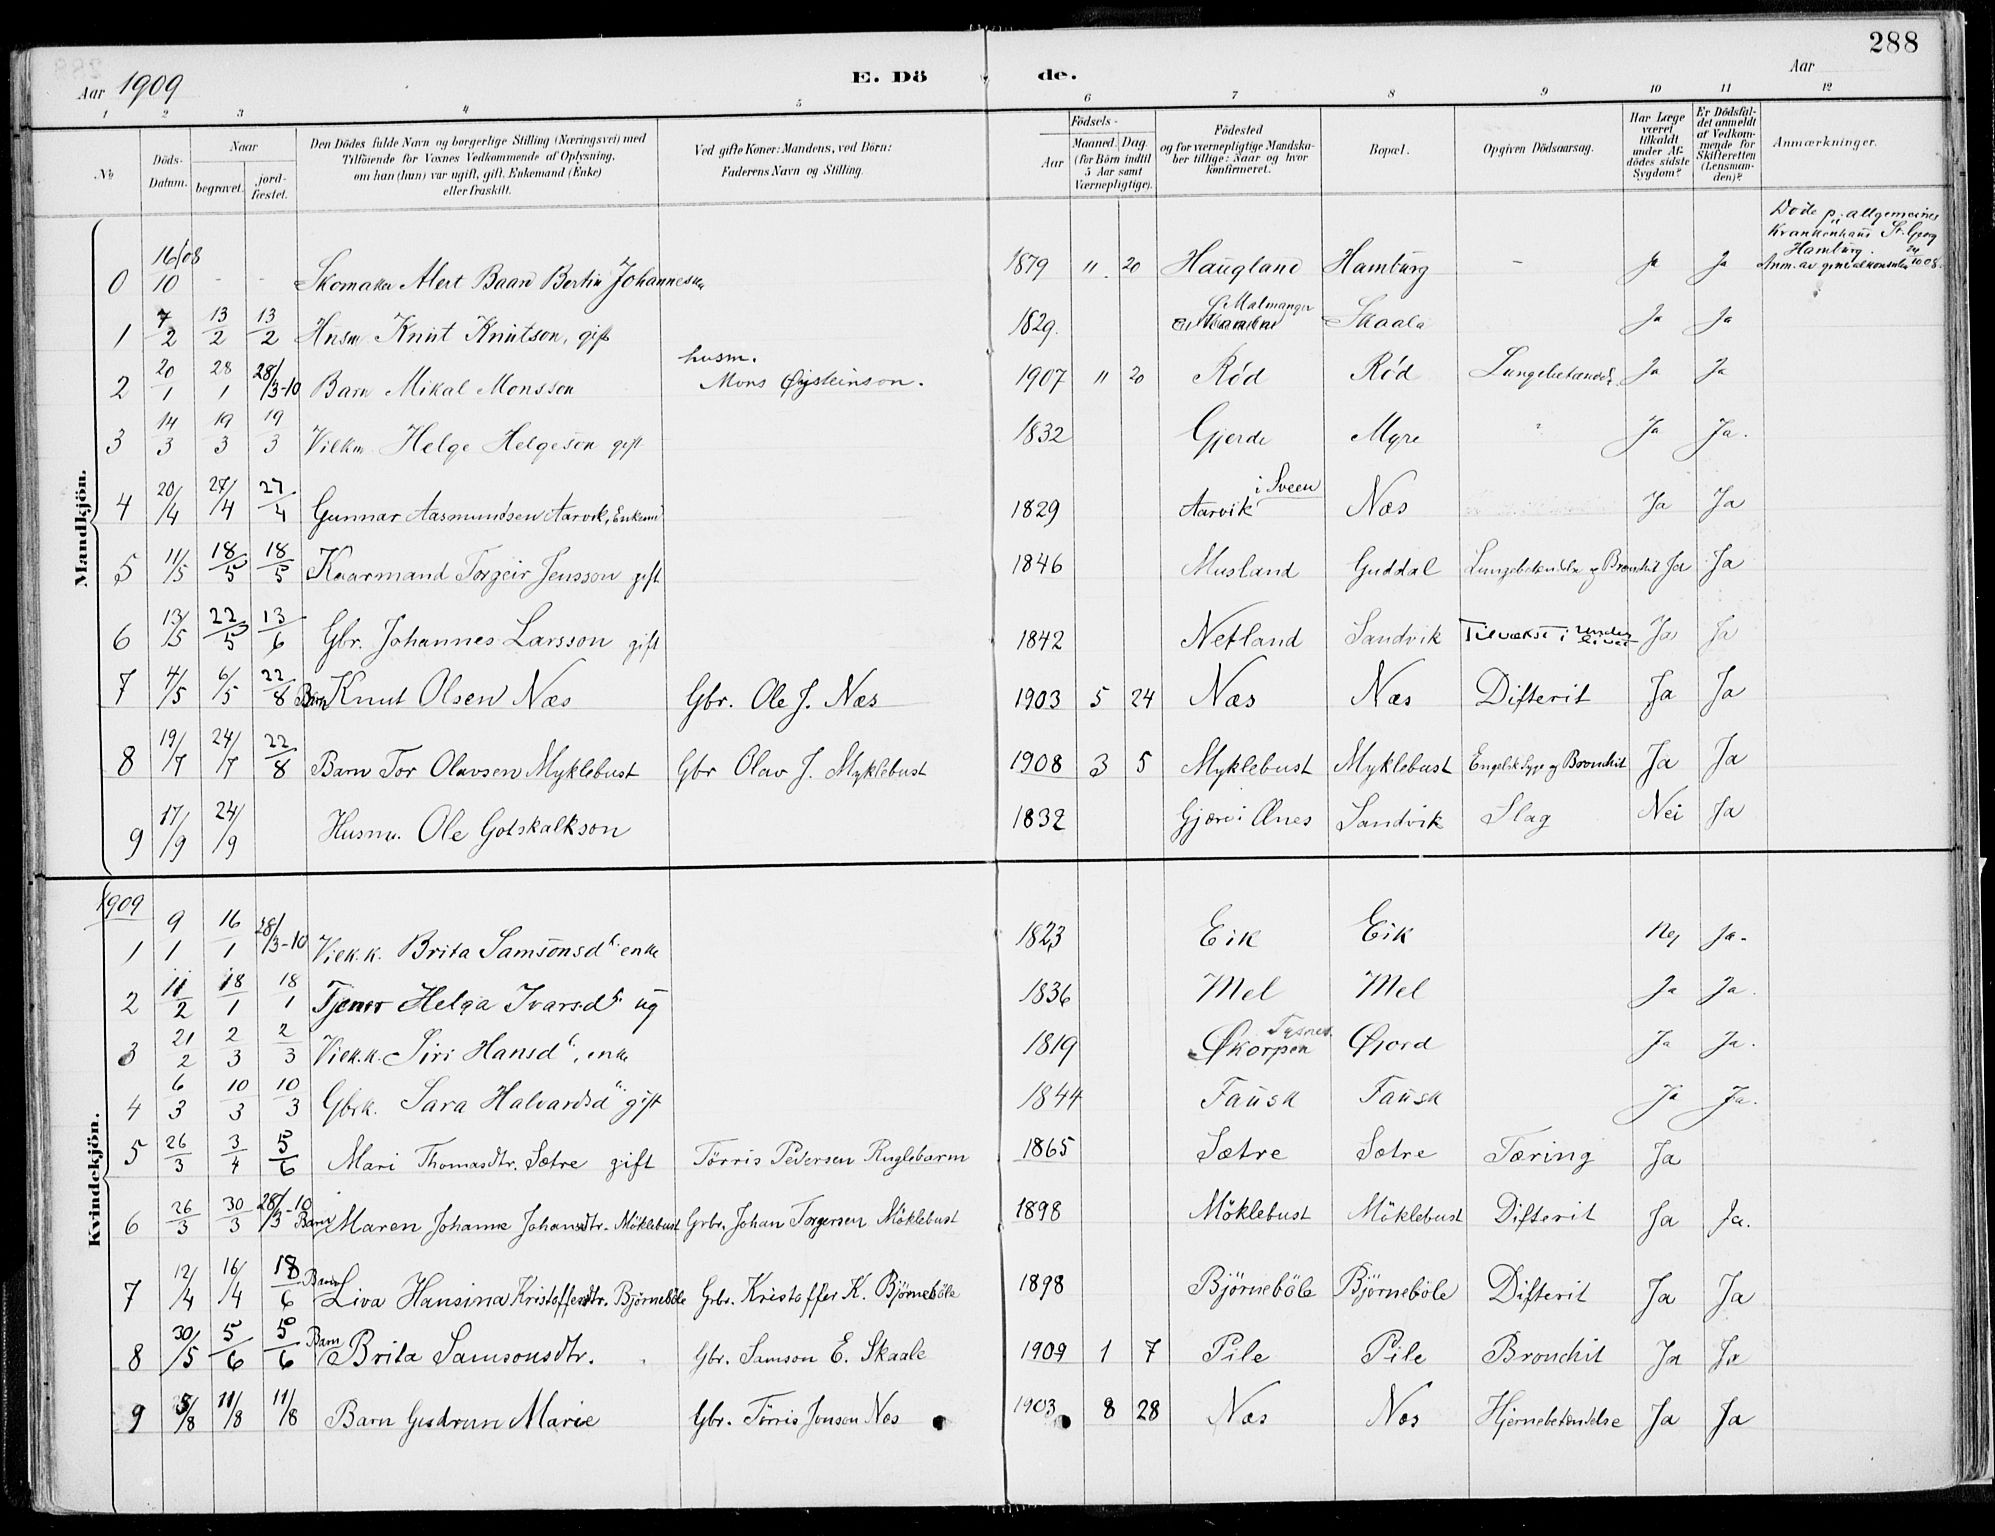 288
Aar 1909
E. Döde.
Aar
1 2 3 4 5 6 7 8 9 10 11 12
No
Döds-Datum.
Naar
begravet.
jordfæstet.
Den Dödes fulde Navn og borgerlige Stilling (Næringsvei) med
Tilföiende for Voxnes Vedkommende af Oplysning,
om han (hun) var ugift, gift, Enkemand (Enke)
eller fraskilt.
Ved gifte Koner: Mandens, ved Börn:
Faderens Navn og Stilling.
Födsels-
Aar
Maaned. Dag.
(for Börn indtil
5 Aar samt
Værnepligtige).
Födested
og for værnepligtige Mandskaber tillige: Naar og hvor
konfirmeret.
Bopæl.
Opgiven Dödsaarsag.
Har Læge
været
tilkaldt
under Afdödes sidste
Sygdom?
Er Dödsfaldet anmeldt
af Vedkommende for
Skifteretten
(Lensmanden)?
Anmærkninger.
Mandkjön.
0 16/08 10 - - Skomaker Alert Baard Bertin Johannesen 1879 " 20 Haugland Hamburg - Ja Ja Döde p. allgemeines Krankenhaus St. Georg Hamburg. Anm. av generalkonsulen 24/10 08.
1 7/2 13/2 13/2 Husm. Knut Knutson, gift 1829. Malmanger Skaala Ja Ja
2 20/1 28/1 28/3-10 Barn Mikal Monsson husm. Mons Øysteinson. 1907 " 20 Röd Röd Lungebetændelse Ja Ja
3 14/3 19/3 19/3 Vilkm. Helge Helgeson gift 1832 Gjerde Myre " Ja Ja.
4 20/4 27/4 27/4 Gunnar Aasmundsen Aarvik, Enkem. 1829 Aarvik i Sveen Næs Ja Ja
5 11/5 18/5 18/5 Kaarmand Torgeir Jensson gift 1846 Musland Guddal Lungebetændelse og Bronchit Ja Ja
6 13/5 22/5 13/6 Gbr. Johannes Larsson gift 1842 Netland Sandvik Tilvækst i Underlivet Ja Ja
7 4/5 6/5 22/8 Barn Knut Olsen Næs Gbr. Ole J. Næs 1903 5 24 Næs Næs Difterit Ja Ja
8 19/7 24/7 22/8 Barn Tor Olavsen Myklebust Gbr Olav J. Myklebust 1908 3 5 Myklebust Myklebust Engelsk Syge og Bronchit Ja Ja
9 17/9 24/9 Husm. Ole Gotskalkson 1832 Gjerde i Ænes Sandvik Slag Nei Ja
Kvindekjön.
1909
1 9/1 16/1 28/3-10 Vilk.k. Brita Samsonsd. enke 1823 Eik Eik Nej Ja.
2 11/2 18/1 18/1 Tjener Helga Ivarsd. ug 1836 Mel Mel Ja Ja.
3 21/2 2/3 2/3 Vilk.k. Siri Hansd., enke 1819 Skorpen Tysnes Øjord Ja Ja.
4 6/3 10/3 10/3 Gbrk. Sara Halvardsd. gift 1844 Fausk Fausk Ja Ja.
5 26/3 3/4 5/6 Mari Thomasdtr. Sætre gift Törris Pedersen Ruglebarm 1865 Sætre Sætre Tæring Ja
6 26/3 30/3 28/3-10 Barn Maren Johanne Johansdtr. Möklebust Grbr. Johan Torgersen Möklebust 1898 Möklebust Möklebust Difterit Ja Ja.
7 12/4 16/4 18/6 Barn Liva Hansina Kristoffersdtr. Björneböle Grbr. Kristoffer K. Björneböle 1898 Björneböle Björneböle Difterit Ja Ja
8 30/5 5/6 5/6 Barn Brita Samsonsdtr. Gbr. Samson E. Skaale 1909 1 7 Pile Pile Bronchit Ja Ja
9 5/8 11/8 11/8 Barn Gudrun Marie Gbr. Törris Jonson Næs 1903 8 28 Næs Næs Hjernebetændelse Ja Ja